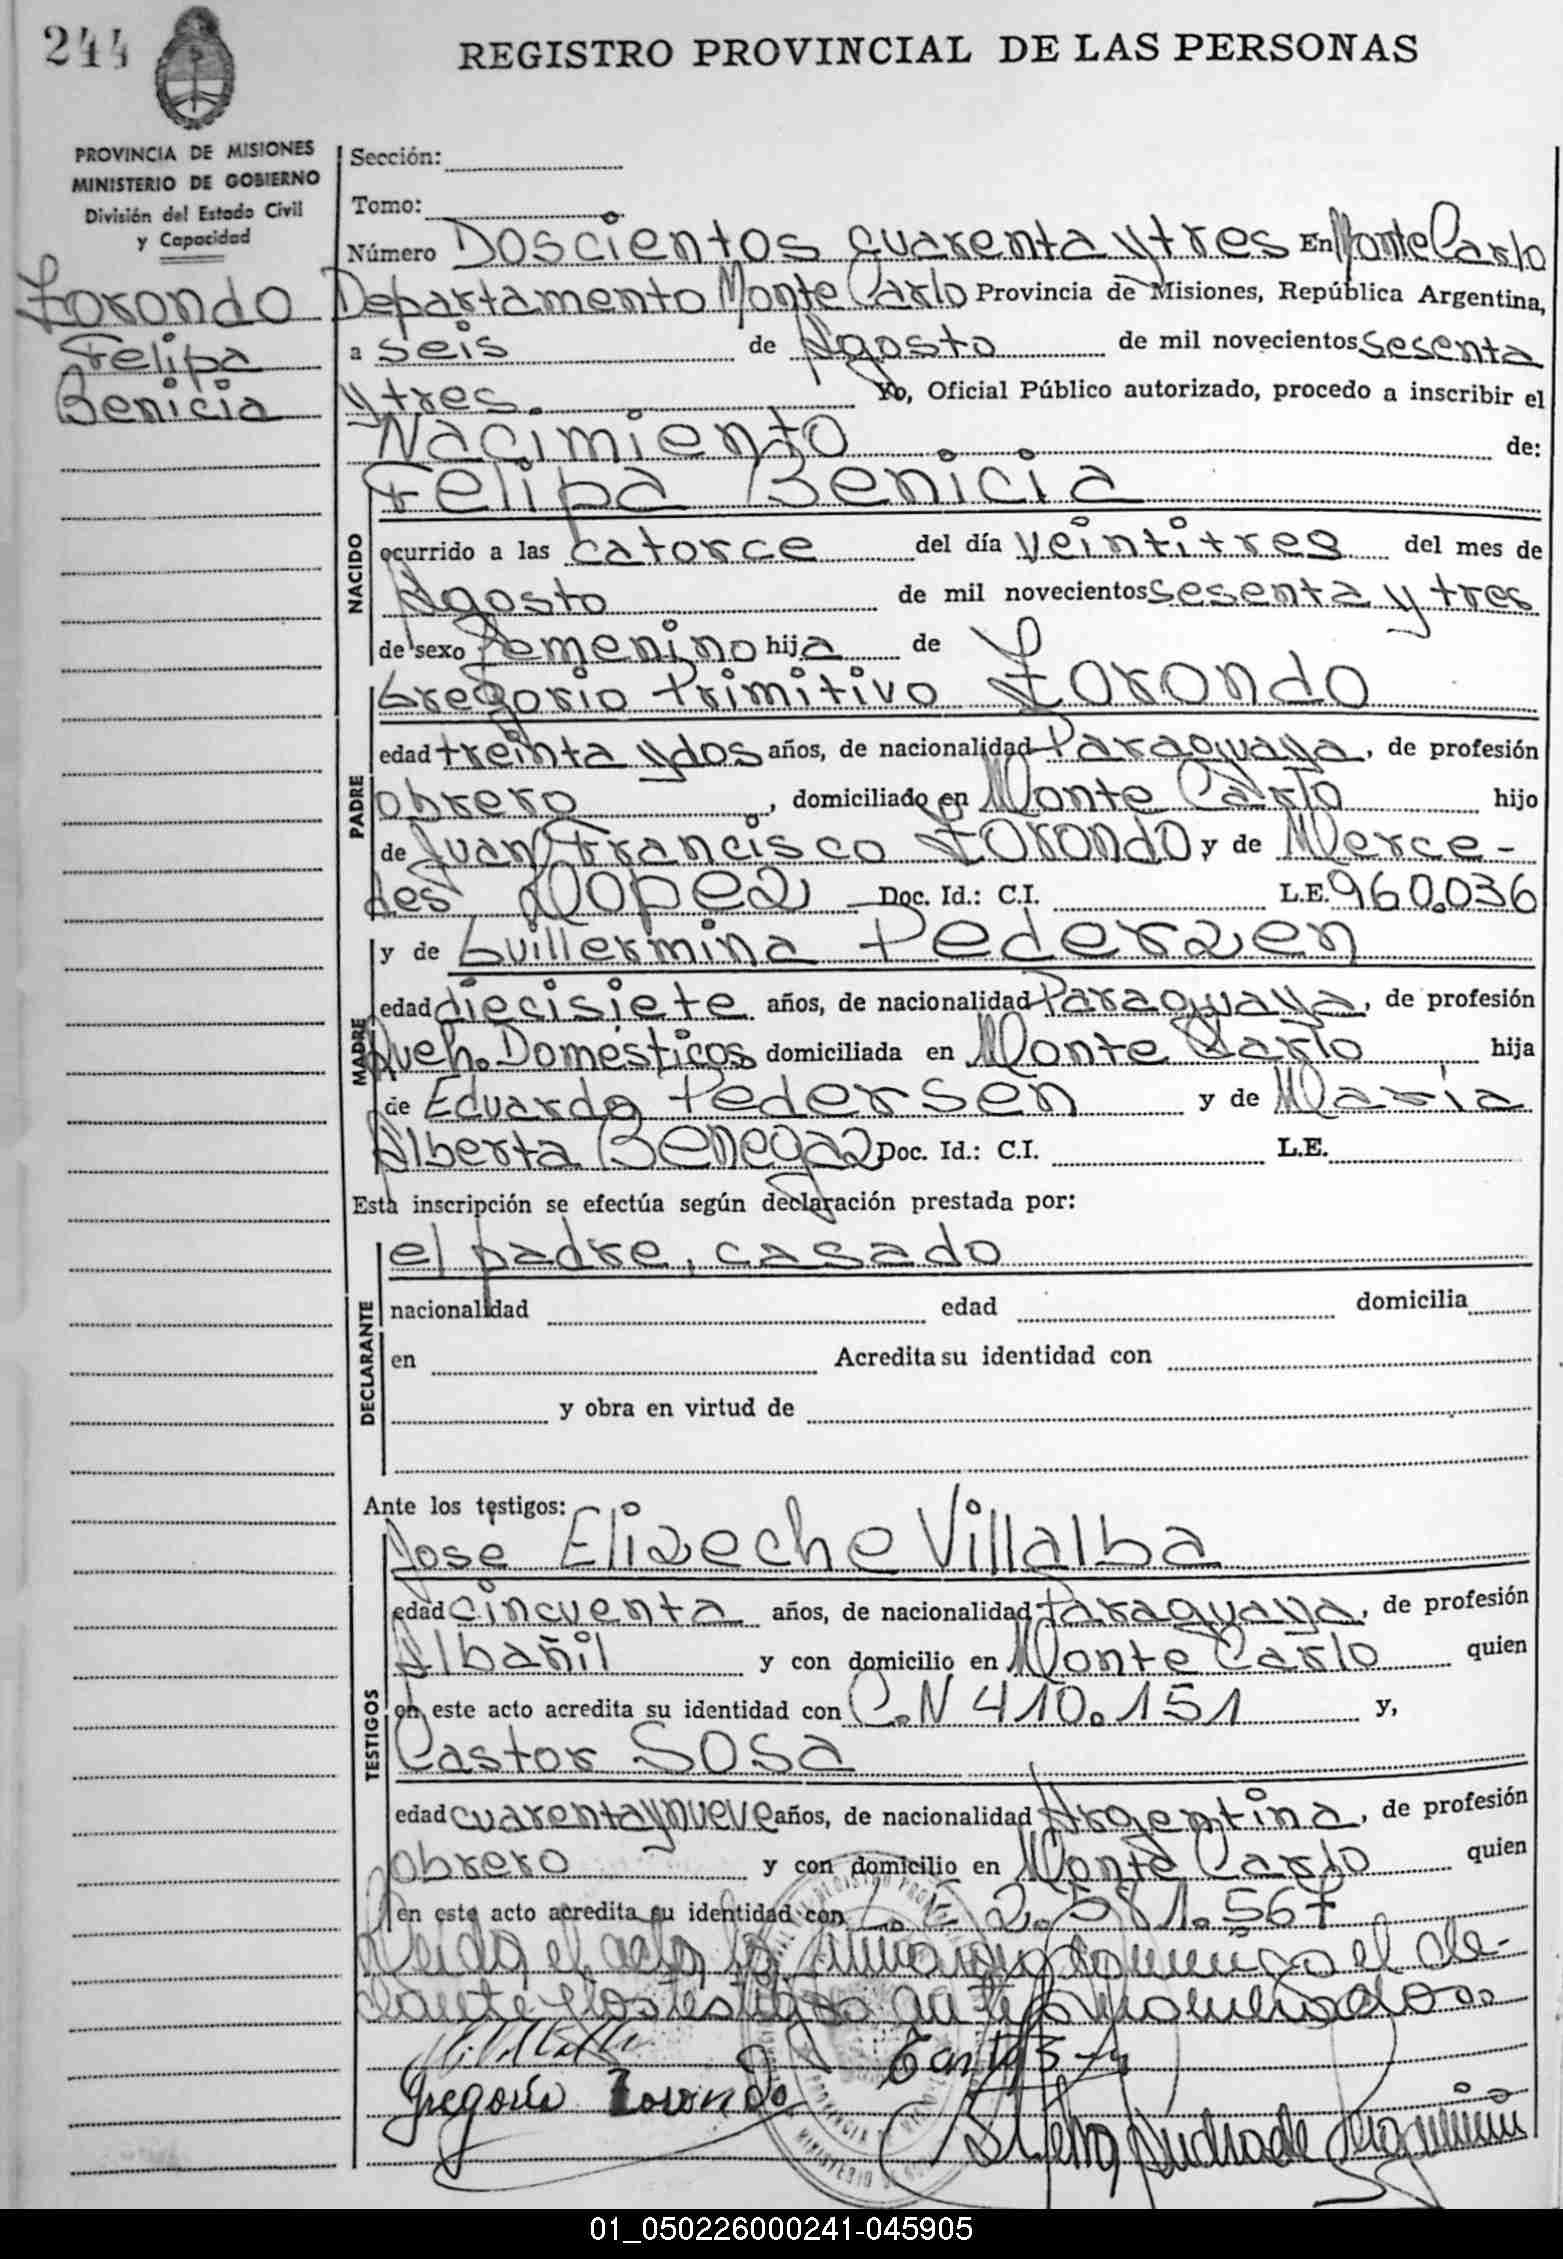 244
REGISTRO PROVINCIAL DE LAS PERSONAS
PROVINCIA DE MISIONES
MINISTERIO DE GOBIERNO
División del Estado Civil
y Capacidad
Zorondo
Felipa
Benicia
Sección:
Tomo:
Número Doscientos cuarenta y tres En Monte Carlo
Departamento Monte Carlo Provincia de Misiones, República Argentina,
a seis de Agosto de mil novecientos sesenta
y tres. Yo, Oficial Público autorizado, procedo a inscribir el
Nacimiento de:
Felipa Benicia
NACIDO
ocurrido a las catorce del día veintitres del mes de
Agosto de mil novecientos sesenta y tres
de sexo femenino hija de
Gregorio Primitivo Zorondo
PADRE
edad treinta y dos años, de nacionalidad Paraguaya, de profesión
obrero, domiciliado en Monte Carlo hijo
de Juan Francisco Zorondo y de Merce-
des Lopez Doc. Id.: C.I. L.E. 960.036
y de Guillermina Pederzen
MADRE
edad diecisiete años, de nacionalidad Paraguaya, de profesión
Queh. Domésticos domiciliada en Monte Carlo hija
de Eduardo Pedersen y de Maria
Alberta Benegaz Doc. Id.: C.I. L.E.
Esta inscripción se efectúa según declaración prestada por:
el padre, casado
DECLARANTE
nacionalidad edad domicilia
en Acredita su identidad con
y obra en virtud de
Ante los testigos:
José Elizeche Villalba
TESTIGOS
edad cincuenta años, de nacionalidad Paraguaya, de profesión
Albañil y con domicilio en Monte Carlo quien
en este acto acredita su identidad con C.N 410.151 y,
Castor Sosa
edad cuarenta y nueve años, de nacionalidad Argentina, de profesión
obrero y con domicilio en Monte Carlo quien
en este acto acredita su identidad con L.E 2.581.567
Leida el acta, la firmaron conmigo el de-
clarante y los testigos
Gregorio Zorondo
01_050226000241-045905